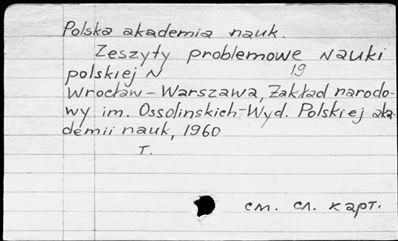 Polska akademia nauk.
Zeszyty problemowe nauki
polskiej N 19
Wrocław-Warszawa, Zakład narodo-
wy im. Ossolinskich-Wyd. Polskiej aka-
demii nauk, 1960
T.
см. сл. карт.